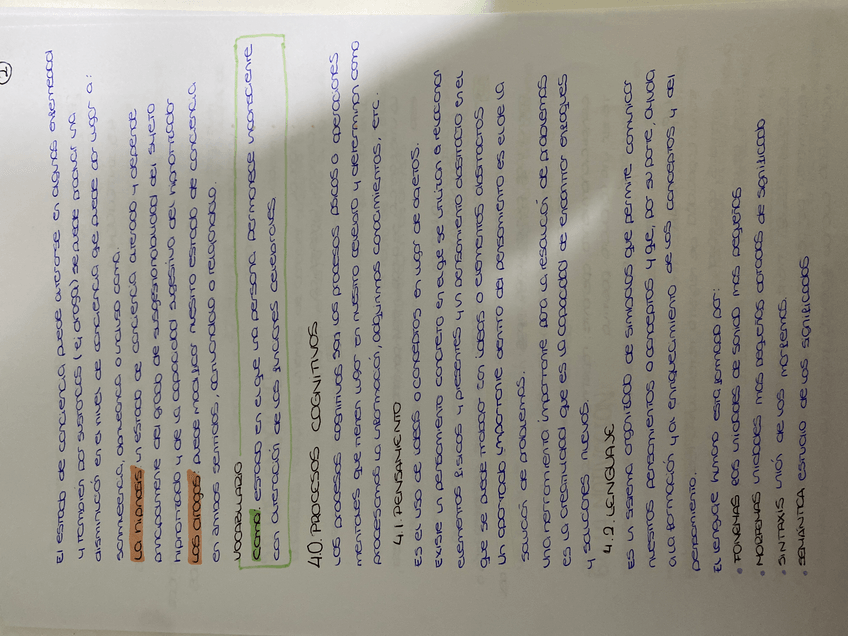 1
El estado de conciencia puede alterarse en algunas enfermedad
y también por sustancias (ej. droga) se puede producir una
disminución en el nivel de conciencia que puede dar lugar a:
somnolencia, obnubilencia o incluso coma.
La hipnosis un estado de conciencia alterado y depende
principalmente del grado de sugestionabilidad del sujeto
hipnotizado y de la capacidad sugestiva del hipnotizador
Las drogas: puede modificar nuestro estado de conciencia
en ambos sentidos, activandolo o relajandolo.
VOCABULARIO
Coma: estado en el que una persona permanece inconsciente
con alteración de las funciones cerebrales
4.0. PROCESOS COGNITIVOS
Los procesos cognitivos son los procesos psicos o operaciones
mentales que tienen lugar en nuestro cerebro y determinan como
procesamos la información, adquirimos conocimientos, etc.
4.1. PENSAMIENTO
Es el uso de ideas o conceptos en lugar de objetos.
Existe un pensamiento concreto en el que se utilizan o relacionan
elementos físicos y presentes y un pensamiento abstracto en el
que se puede trabajar con ideas o elementos abstractos
Un apartado importante dentro del pensamiento es el de la
solución de problemas.
Una herramienta importante para la resolución de problemas
es la creatividad que es la capacidad de encontrar enfoques
y soluciones nuevas.
4.2. LENGUAJE
Es un sistema organizado de simbolos que permite comunicar
nuestros pensamientos o conceptos y que, por su parte, ayuda
a la formación y al enriquecimiento de los conceptos y del
pensamiento.
El lenguaje humano esta formado por:
• FONEMAS las unidades de sonido mas pequeñas
• MORFEMAS unidades mas pequeñas dotadas de significado
• SINTAXIS unión de los morfemas.
• SEMANTICA estudio de los significados